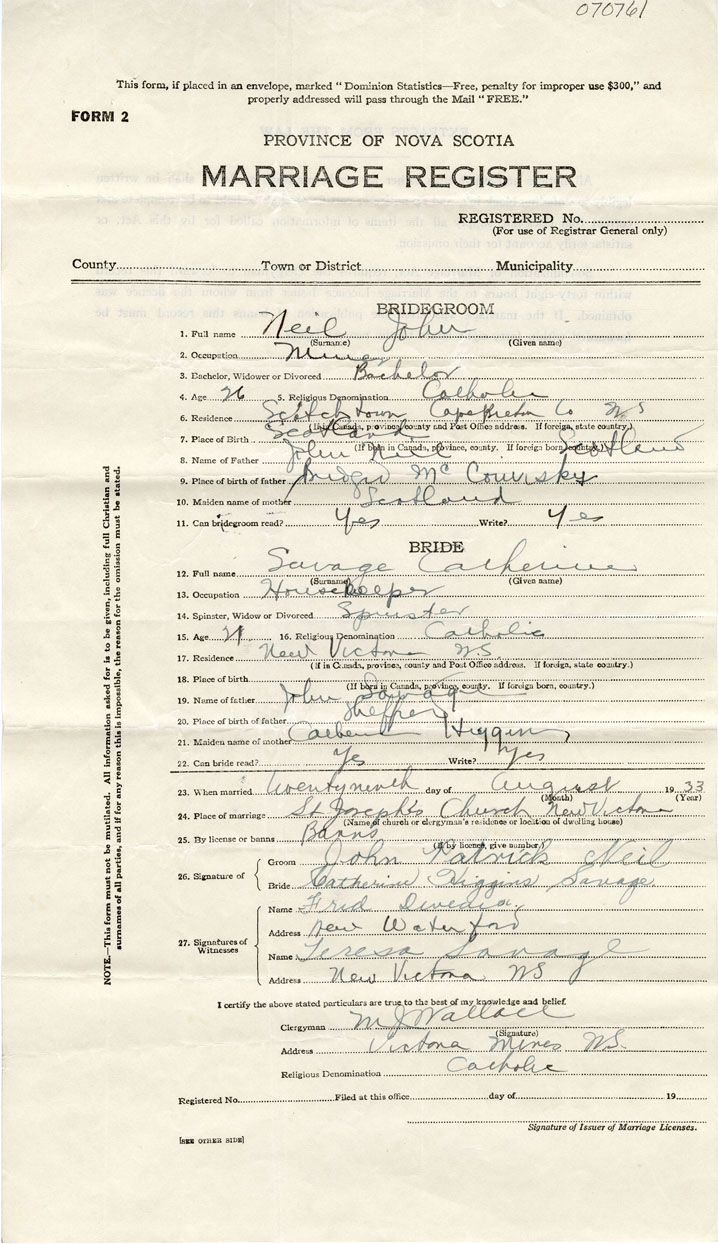 070761
This form, if placed in an envelope, marked "Dominion Statistics—Free, penalty for improper use $300," and
properly addressed will pass through the Mail "FREE."
FORM 2
PROVINCE OF NOVA SCOTIA
MARRIAGE REGISTER
REGISTERED No.
(For use of Registrar General only)
County Town or District Municipality
BRIDEGROOM
1. Full name Neil John
(Surname) (Given name)
2. Occupation Miner
3. Bachelor, Widower or Divorced Bachelor
4. Age 26 5. Religious Denomination Catholic
6. Residence Scotchtown Cape Breton Co N.S
(If in Canada, province, county and Post Office address. If foreign, state country.)
7. Place of Birth Scotland
(If born in Canada, province, county. If foreign born, country.)
8. Name of Father John Neil Scotland
9. Place of birth of father Bridget Mc
10. Maiden name of mother Scotland
11. Can bridegroom read? Yes Write? Yes
BRIDE
12. Full name Savage Catherine
(Surname) (Given name)
13. Occupation Housekeeper
14. Spinster, Widow or Divorced Spinster
15. Age 21 16. Religious Denomination Catholic
17. Residence New Victoria N.S
(If in Canada, province, county and Post Office address. If foreign, state country.)
18. Place of birth
(If born in Canada, province, county. If foreign born, country.)
19. Name of father John Savage
20. Place of birth of father
21. Maiden name of mother Catherine Higgins
22. Can bride read? Yes Write? Yes
23. When married twentyninth day of August 1933
(Month) (Year)
24. Place of marriage St Joseph's Church New Victoria
(Name of church or clergyman's residence or location of dwelling house)
25. By license or banns Banns
(If by licence, give number.)
26. Signature of
Groom John Patrick Neil
Bride Catherine Higgins Savage
27. Signatures of Witnesses
Name Fred
Address New Waterford
Name Teresa Savage
Address New Victoria NS
I certify the above stated particulars are true to the best of my knowledge and belief.
Clergyman M J Wallace
(Signature)
Address Victoria Mines N.S.
Religious Denomination Catholic
Registered No. Filed at this office day of 19
Signature of Issuer of Marriage Licenses.
[SEE OTHER SIDE]
NOTE.—This form must not be mutilated. All information asked for is to be given, including full Christian and
surnames of all parties, and if for any reason this is impossible, the reason for the omission must be stated.